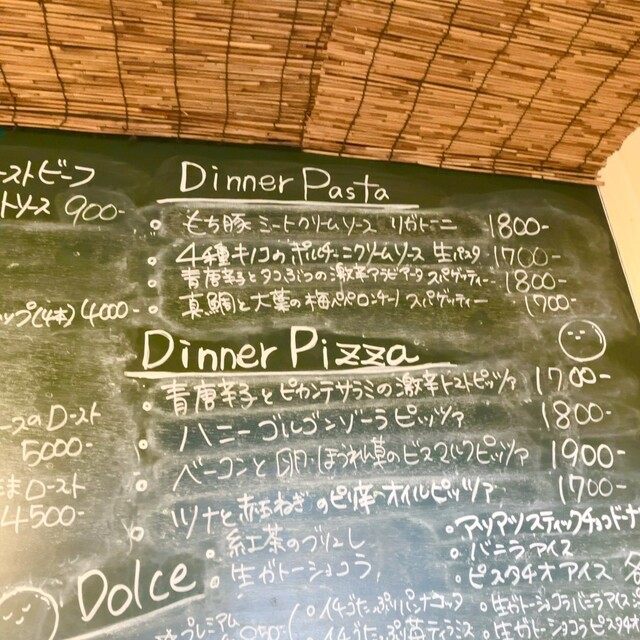 ーストビーフ
トソース 900-
ップ(4本) 4000-
ースのロースト
5000-
ロースト
4500-
Dinner Pasta
・もち豚 ミートクリームソース リガトーニ 1800-
・4種キノコのポルチーニクリームソース 生パスタ 1700-
・青唐辛子とタコぶつの激辛アラビアータ スパゲッティー 1800-
・真鯛と大葉の梅ペペロンチーノ スパゲティー 1700-
Dinner Pizza
・青唐辛子とピカンテサラミの激辛トマトピッツァ 1700-
・ハニーゴルゴンゾーラピッツァ 1800-
・ベーコンと卵・ほうれん草のビスマルクピッツァ 1900-
・ツナと赤玉ねぎのピリ辛オイルピッツァ 1700-
Dolce
・紅茶のブリュレ
・生ガトーショコラ
・アツアツスティックチョコドーナ
・バニラアイス
・ピスタチオアイス
プレミアム
・イチゴたっぷりパンナコッタ
・イチゴたっぷり苺ティラミス
・生ガトーショコラバニラアイス
・生ガトーショコラピスタチオ